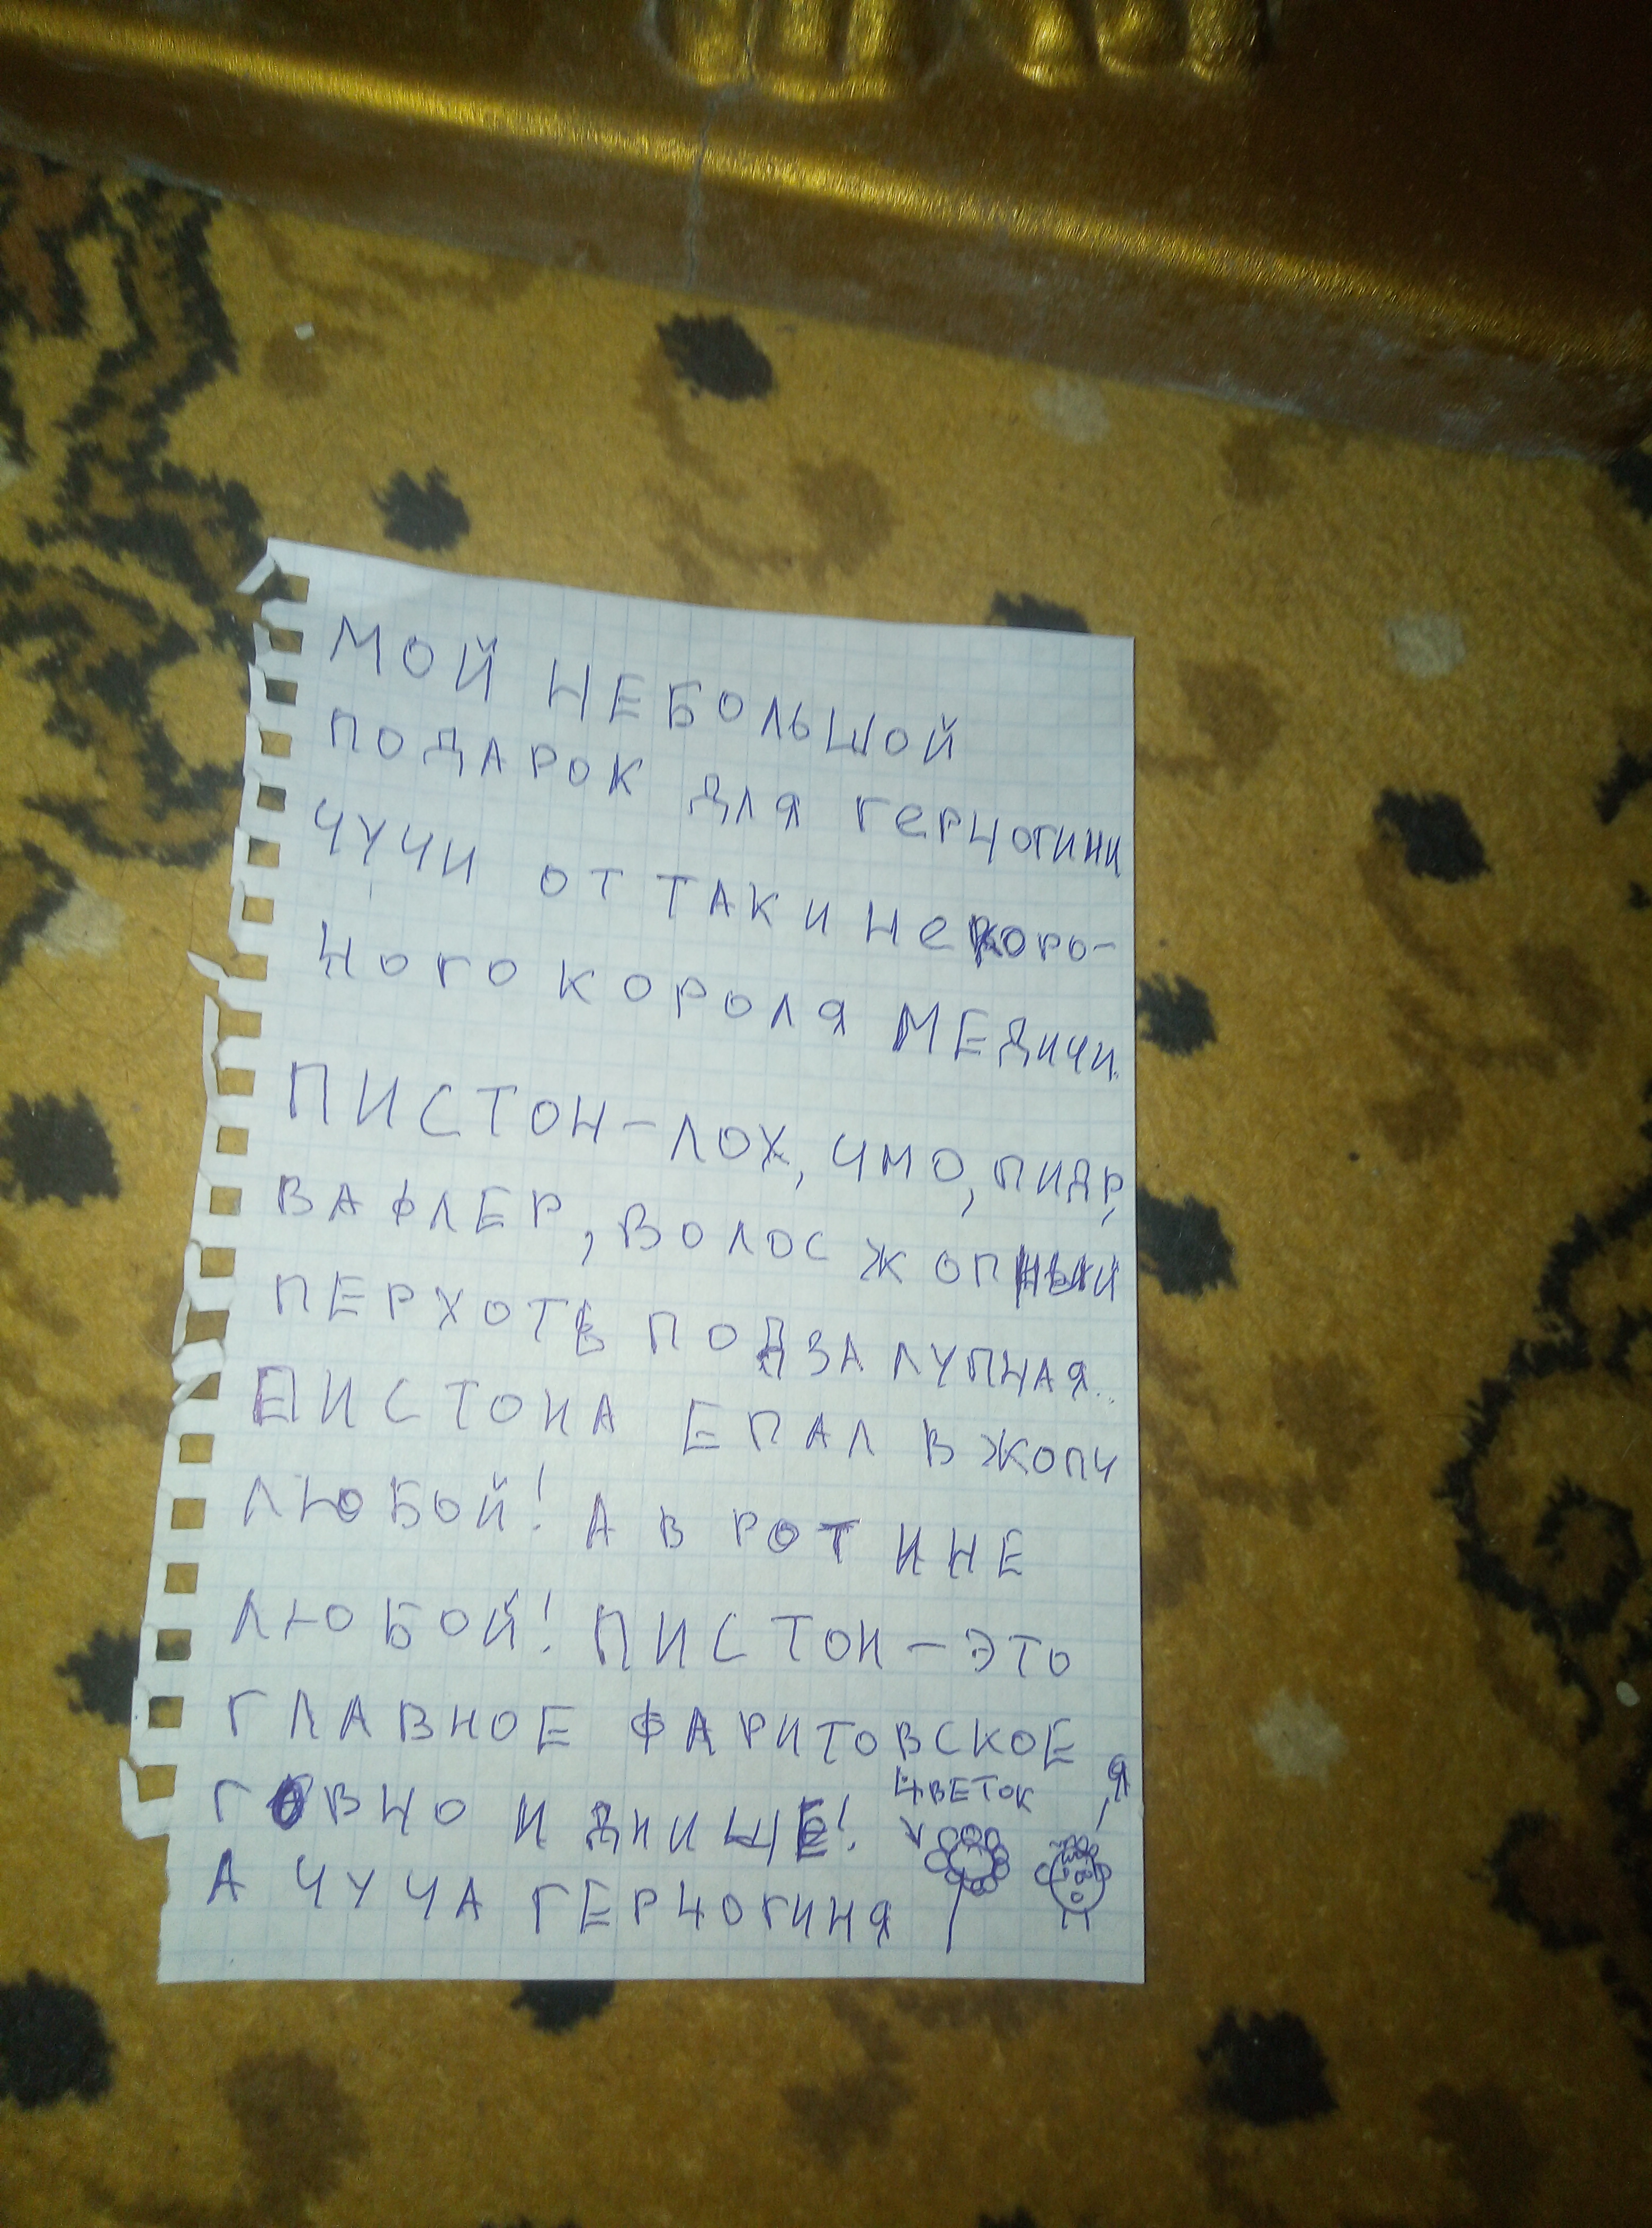 МОЙ НЕБОЛЬШОЙ
ПОДАРОК ДЛЯ ГЕРЦОГИНИ
ЧУЧИ ОТ ТАК И НЕ КОРО-
НОГО КОРОЛЯ МЕДИЧИ.
ПИСТОН - ЛОХ, ЧМО, ПИДР,
ВАФЛЕР, ВОЛОС ЖОПНЫЙ
ПЕРХОТЬ ПОДЗАЛУПНАЯ..
ПИСТОНА ЕПАЛ В ЖОПУ
ЛЮБОЙ! А В РОТ И НЕ
ЛЮБОЙ! ПИСТОН - ЭТО
ГЛАВНОЕ ФАРИТОВСКОЕ
ГОВНО И ДНИЩЕ!
ЦВЕТОК
Я
А ЧУЧА ГЕРЦОГИНЯ